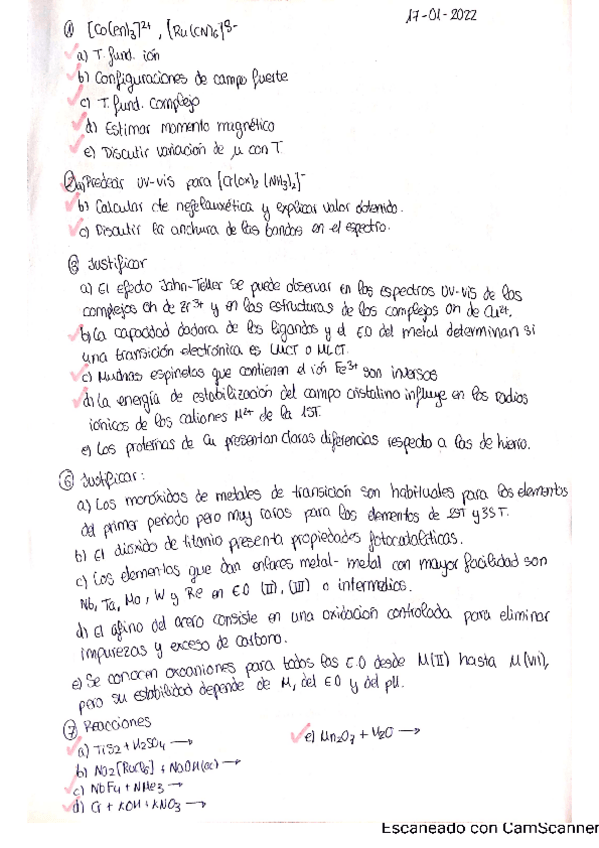 17-01-2022
① [Co(en)₃]²⁺, [Ru(CN)₆]⁸⁻
a) T. fund. ión
b) Configuraciones de campo fuerte
c) T. fund. complejo
d) Estimar momento magnético
e) Discutir variación de μ con T.
② a) Predecir UV-vis para [Cr(ox)₂(NH₃)₂]⁻
b) Calcular cte nefelauxética y explicar valor obtenido.
c) Discutir la anchura de las bandas en el espectro.
③ Justificar
a) El efecto Jahn-Teller se puede observar en los espectros UV-vis de los
complejos Oh de Zr³⁺ y en las estructuras de los complejos Oh de Cu²⁺.
b) La capacidad dadora de los ligandos y el EO del metal determinan si
una transición electrónica es LMCT o MLCT.
c) Muchas espinelas que contienen el ión Fe³⁺ son inversas
d) La energía de estabilización del campo cristalino influye en los radios
iónicos de los cationes M²⁺ de la 1ST.
e) Las proteínas de Cu presentan claras diferencias respecto a las de hierro.
⑥ Justificar:
a) Los monóxidos de metales de transición son habituales para los elementos
del primer periodo pero muy raros para los elementos de 2ST y 3ST.
b) El dióxido de titanio presenta propiedades fotocatalíticas.
c) Los elementos que dan enlaces metal-metal con mayor facilidad son
Nb, Ta, Mo, W y Re en EO (II), (III) o intermedios.
d) El afino del acero consiste en una oxidación controlada para eliminar
impurezas y exceso de carbono.
e) Se conocen oxoaniones para todos los E.O desde M(II) hasta M(VII),
pero su estabilidad depende de M, del EO y del pH.
⑦ Reacciones
a) TiS₂ + H₂SO₄ →
e) Mn₂O₇ + H₂O →
b) Na₂[RuCl₆] + NaOH(ac) →
c) NbF₄ + NMe₃ →
d) Cr + KOH + KNO₃ →
Escaneado con CamScanner